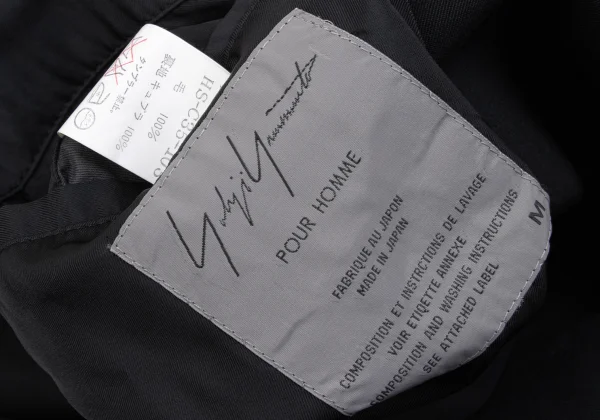 Yohji Yamamoto
POUR HOMME
FABRIQUE AU JAPON
MADE IN JAPAN
COMPOSITION ET INSTRCTIONS DE LAVAGE
VOIR ETIQETTE ANNEXE
COMPOSITION AND WASHING INSTRUCTIONS
SEE ATTACHED LABEL
M
HS-C35-103
毛 100%
裏地 キュプラ 100%
タンブラー禁止